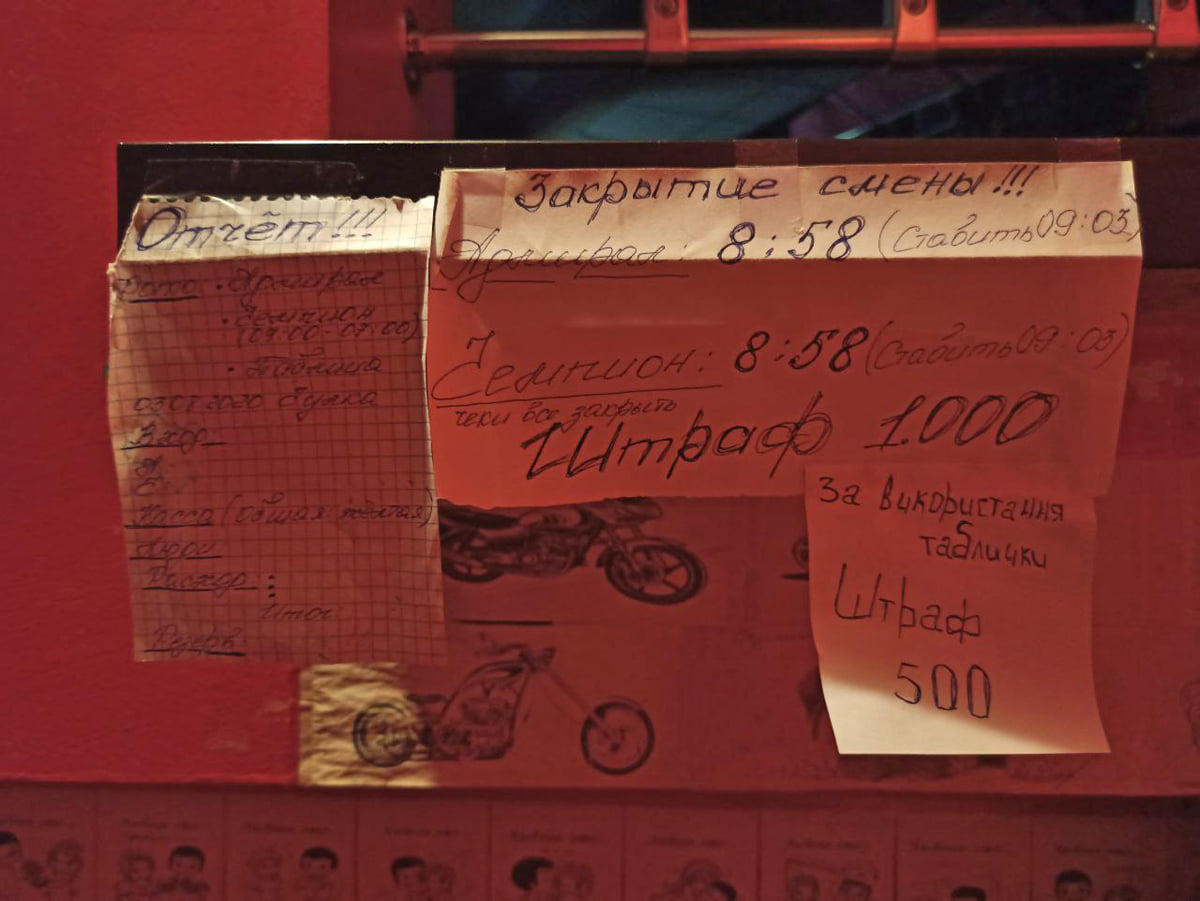 Отчёт!!!
Фото: • Адмирал
• Чемпион
(07:00-07:00)
• Таблица
03.07.2020 Булка
Вход:
Касса (общая: жёлтая)
Расход:
Итог
Резерв:
Закрытие смены!!!
Адмирал: 8:58 (Ставить 09:03)
Чемпион: 8:58 (Ставить 09:03)
чеки все закрыть
Штраф 1.000
За використання
таблички
Штраф
500